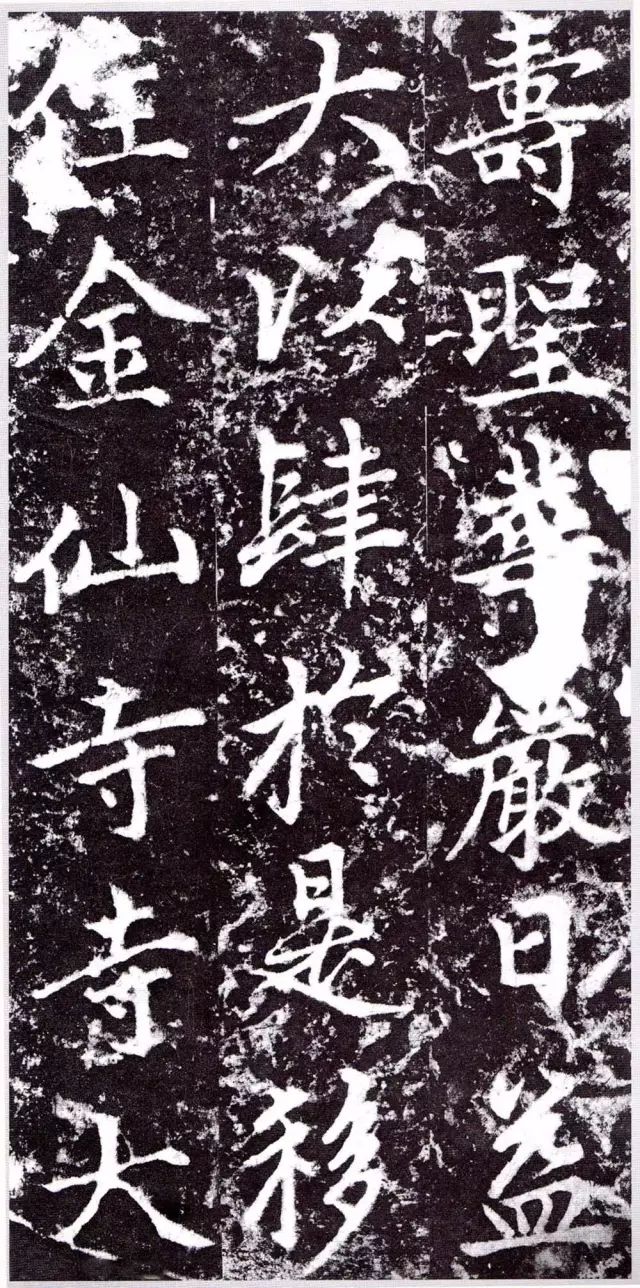 壽聖華嚴日益
大以肆於是移
住金仙寺寺大